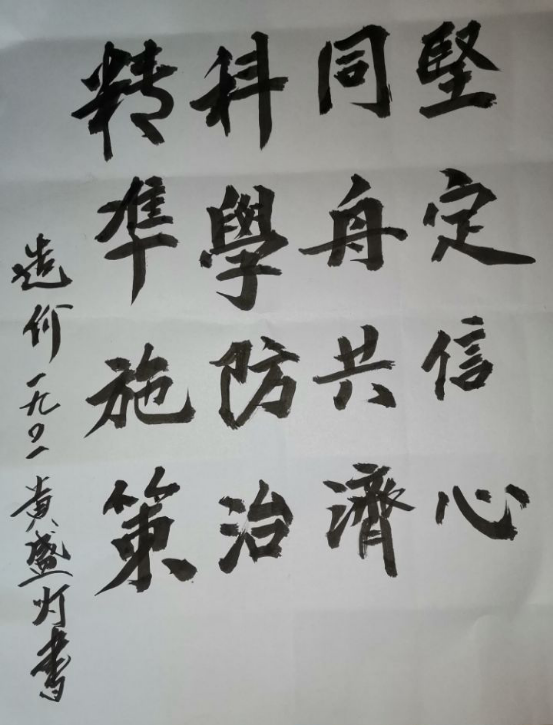 堅定信心
同舟共濟
科學防治
精準施策
造价一九〇一黃盛灯書